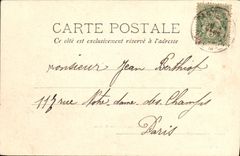 CARTE POSTALE
Ce côté est exclusivement réservé à l'adresse
Monsieur Jean Berthiot
117 rue Notre-dame-des-Champs
Paris